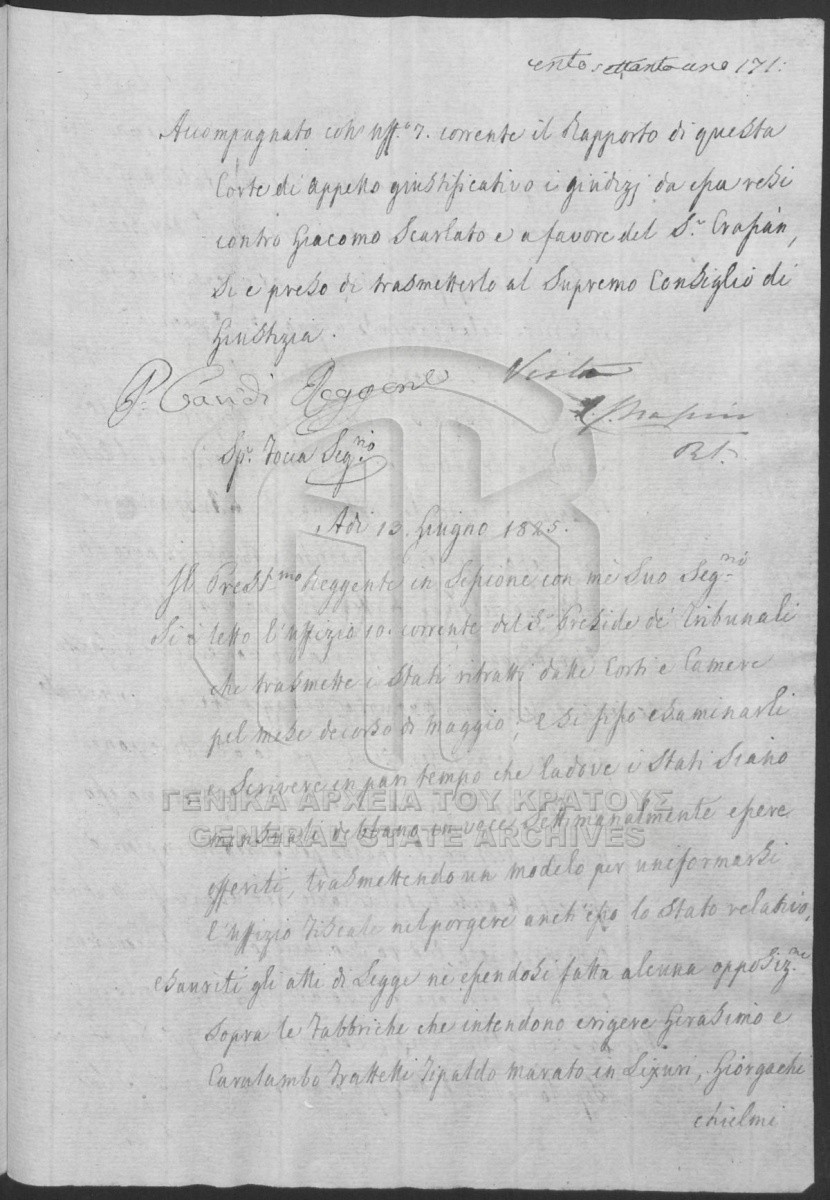 cento settanta uno 171:
Accompagnato coh uff.o 7. corrente il Rapporto di questa
Corte di Appello giustificativo i giudizj da essa resi
contro Giacomo Scarlato e a favore del S.r Crassan,
Si è preso di trasmetterlo al Supremo Consiglio di
Giustizia.
P. Candi Reggente
Vista
Sp.r Focca Seg.rio
Adi 13. Giugno 1825.
Il Prest.mo Reggente in Sessione con me Suo Seg.rio
Si è letto l'Uffizio 10. corrente del S.r Preside de' Tribunali
che trasmette i Stati ritratti dalle Corti e Camere
pel mese decorso di Maggio, e si fissò esaminarli
e Scrivere in pari tempo che ladove i Stati Siano
mensuali debbano in voce Settimanalmente essere
offeriti, trasmettendo un modelo per uniformarsi
l'Uffizio Fiscale nel porgere anch'esso lo Stato relativo,
Esauriti gli atti di Legge nè essendosi fatta alcuna opposiz.ne
sopra le Fabbriche che intendono erigere Gerasimo e
Caralambo Frattelli Tipaldo Marato in Lixuri, Giorgachi
chielmi
ΓΕΝΙΚΑ ΑΡΧΕΙΑ ΤΟΥ ΚΡΑΤΟΥΣ
GENERAL STATE ARCHIVES